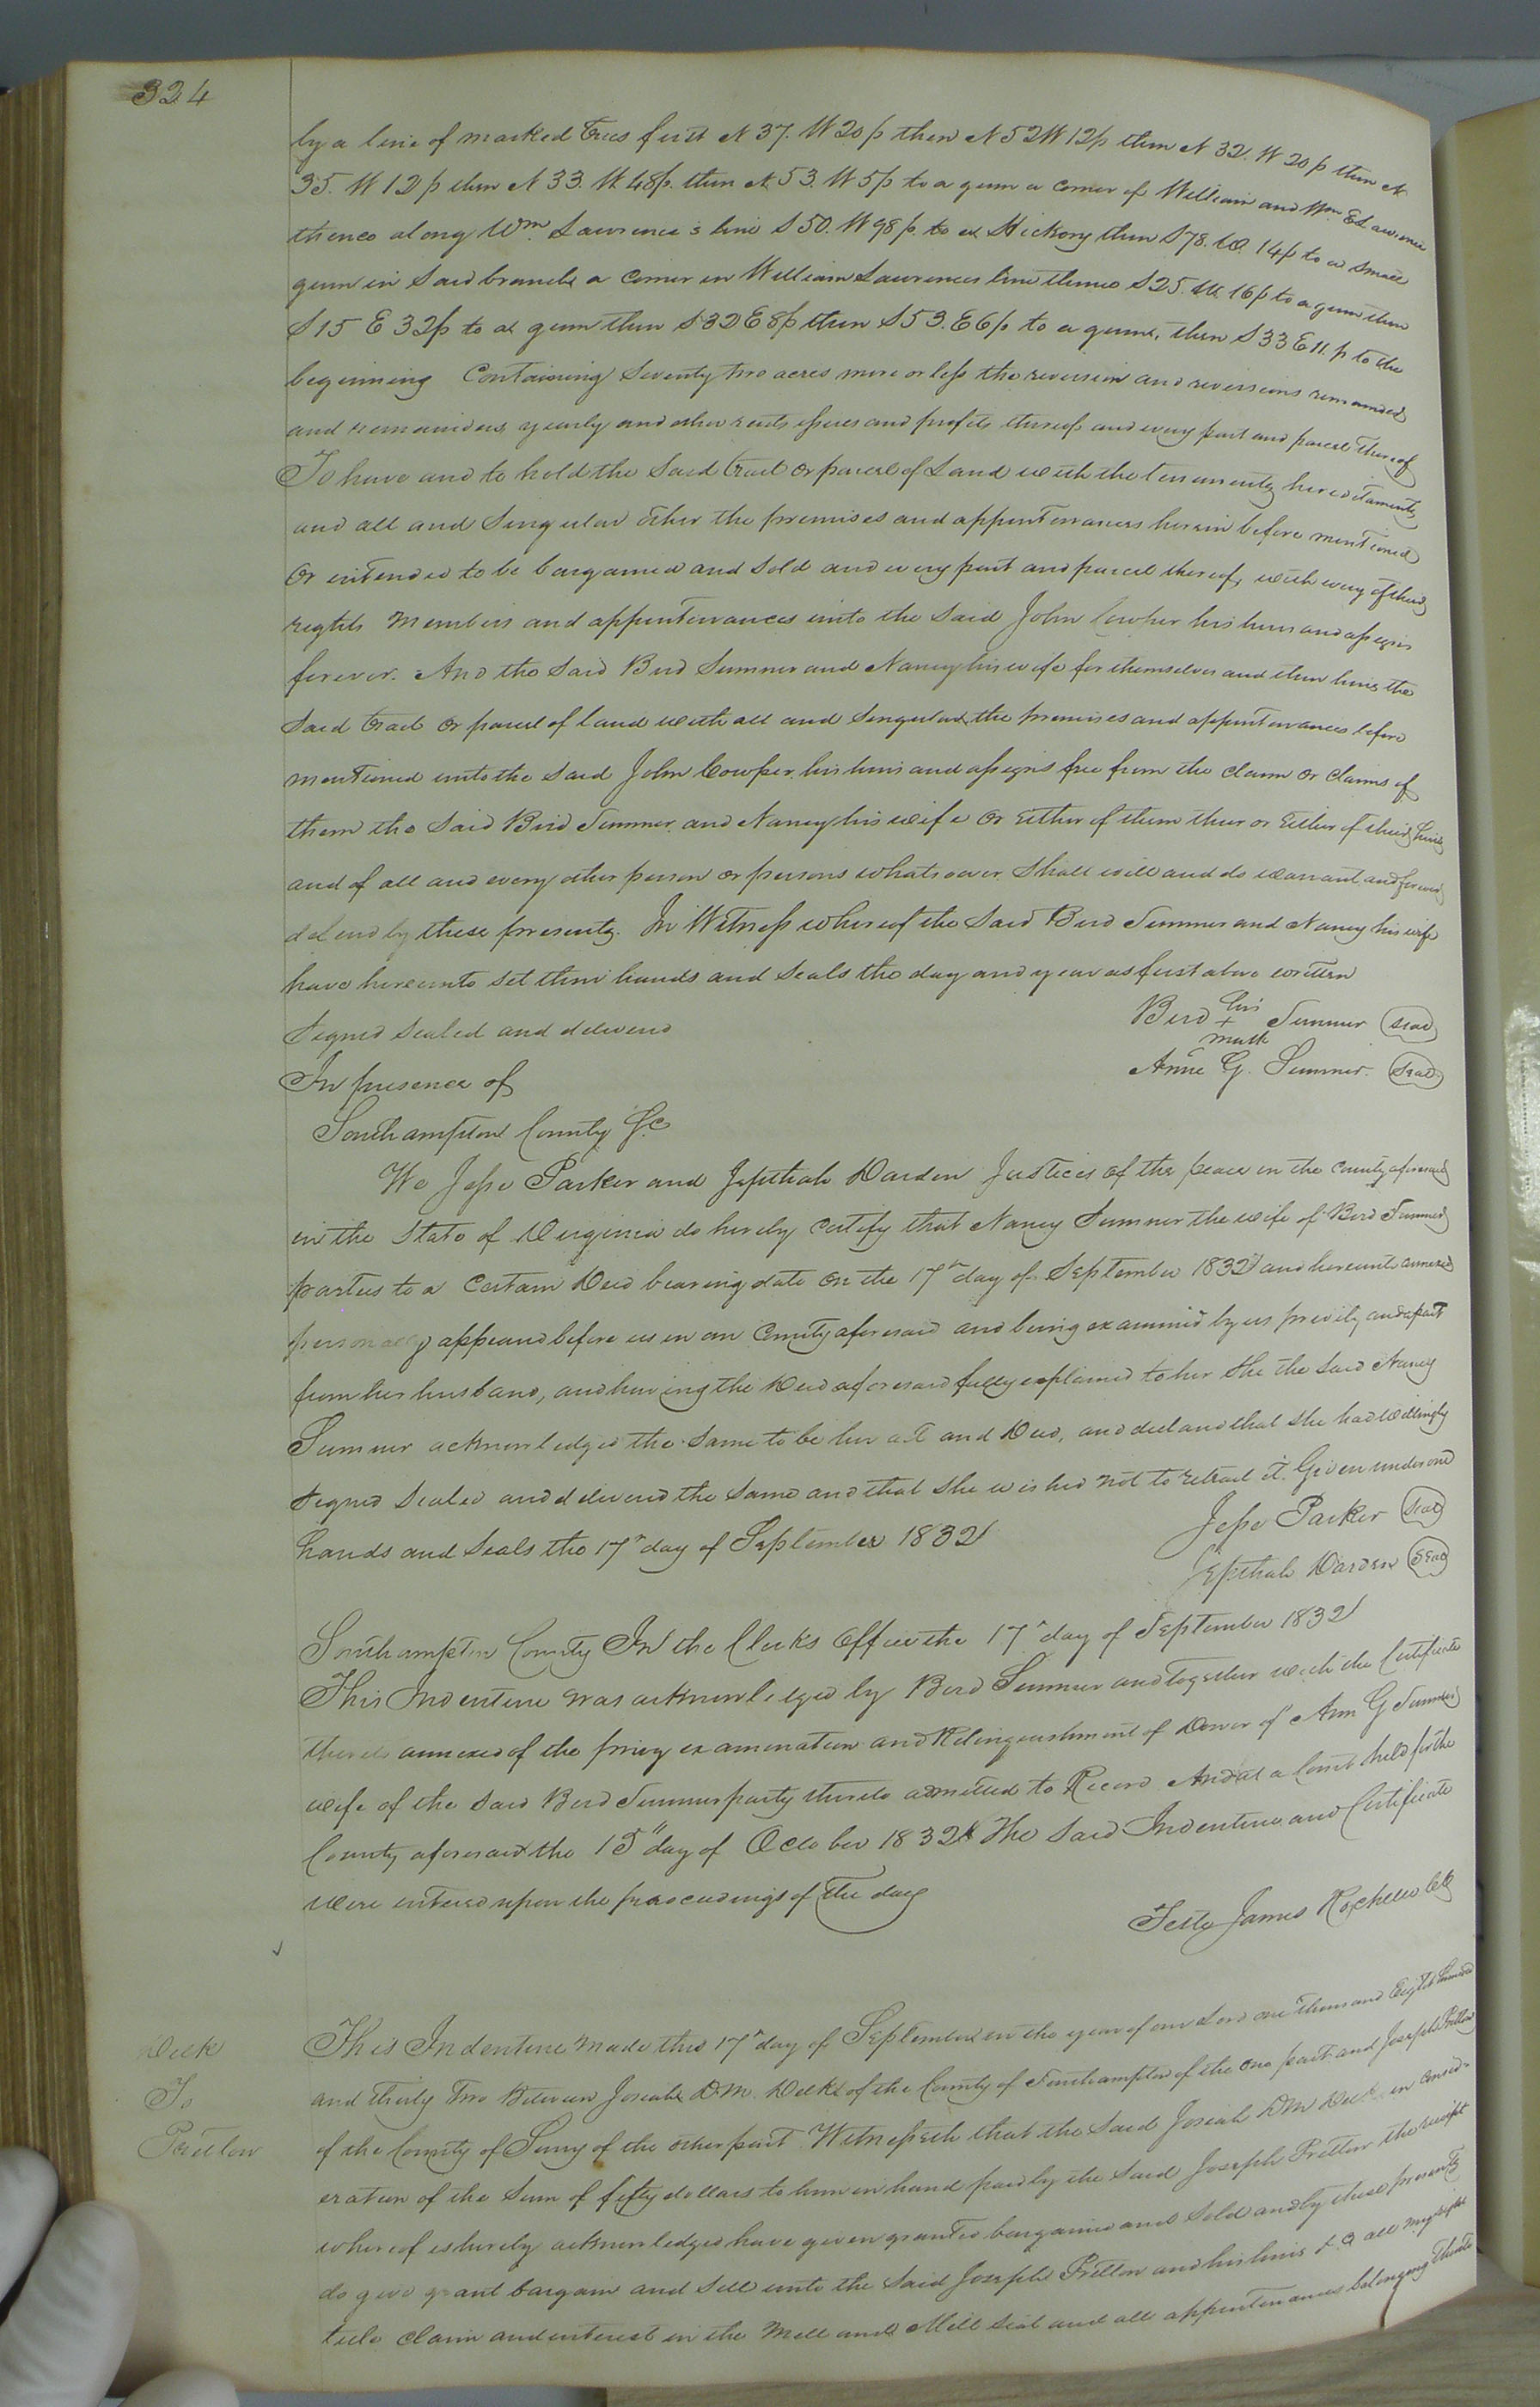 324
by a line of marked trees first N 37. W 20 p then N 52 W 12 p then N 32. W 20 p then N
35. W 12 p then N 33. W. 48 p. then N. 53. W 5 p to a gum a corner of William and Wm E Lawrence
thence along Wm Lawrence's line S 50. W 98 p. to a Hickory then S 78. W. 14 p to a small
gum in said branch a corner in William Lawrences line thence S 25. W. 16 p to a gum then
S 15 E 32 p to a gum then S 32 E 8 p then S 53. E 6 p to a gum, then S 33 E 11. p to the
beginning Containing Seventy two acres more or less the reversion and reversions remainder
and remainders yearly and other rents issues and profits thereof and every part and parcel thereof
To have and to hold the said tract or parcel of Land with the tenements hereditaments
and all and Singular other the premises and appurtenances herein before mentioned
Or intended to be bargained and sold and every part and parcel thereof, with every of their
rights Members and appurtenances unto the said John Cowper his heirs and assigns
forever. And the said Bird Sumner and Nancy his wife for themselves and their heirs the
said tract or parcel of land with all and Singular the premises and appurtenances before
mentioned unto the said John Cowper his heirs and assigns free from the claim or claims of
them the said Bird Sumner and Nancy his wife or either of them their or either of their heirs
and of all and every other person or persons whatsoever shall will and do warrant and forever
defend by these presents. In Witness whereof the said Bird Sumner and Nancy his wife
have hereunto set their hands and seals the day and year as first above written
Signed sealed and delivered
In presence of
Bird his + mark Sumner Seal
Anne G. Sumner. Seal
Southampton County Sc
We Jesse Parker and Jepthah Darden Justices of the peace in the County aforesaid
in the State of Virginia do hereby certify that Nancy Sumner the wife of Bird Sumner
parties to a certain Deed bearing date on the 17th day of September 1832 and hereunto annexed
personally appeared before us in our County aforesaid and being examined by us privily and apart
from her husband, and having the Deed aforesaid fully explained to her She the said Nancy
Sumner acknowledged the same to be her act and Deed, and declared that she had willingly
signed sealed and delivered the same and that she wished not to retract it. Given under our
hands and Seals the 17th day of September 1832
Jesse Parker Seal
Jepthah Darden Seal
Southampton County In the Clerks Office the 17th day of September 1832
This Indenture was acknowledged by Bird Sumner and together with the Certificate
thereto annexed of the privy examination and Relinquishment of Dower of Ann G Sumner
wife of the said Bird Sumner party thereto admitted to Record And at a Court held for the
County aforesaid the 15th day of October 1832 The said Indenture and Certificate
were entered upon the proceedings of the day
Teste James Rochelle Clk
Delk
To
Pretlow
This Indenture made this 17th day of September in the year of our Lord one thousand Eight hundred
and thirty two Between Josiah D.M. Delk of the County of Southampton of the one part and Joseph Pretlow
of the County of Surry of the other part Witnesseth that the said Josiah D M Delk in consid-
eration of the sum of fifty dollars to him in hand paid by the said Joseph Pretlow the receipt
whereof is hereby acknowledged have given granted bargained and sold and by these presents
do give grant bargain and sell unto the said Joseph Pretlow and his heirs &c all my right
title claim and interest in the Mill and Mill seat and all appurtenances belonging thereto